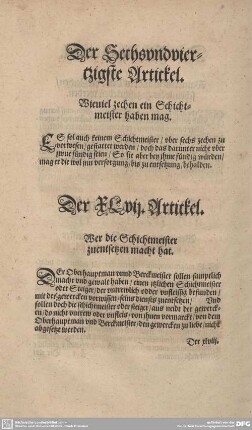 Der Sechsvndvier-
tzigste Artickel.
Wieuiel zechen ein Schicht-
meister haben mag.
ES sol auch keinem Schichtmeister / vber sechs zechen zu
vorwesen / gestattet werden / doch das darunter nicht vber
zwue fündig seien / So sie aber bey ihme fündig würden /
mag er die wol inn vorsorgung / bis zu entsetzung / behalden.
Der XLvij. Artickel.
Wer die Schichtmeister
zuentsetzen macht hat.
DEr Oberhauptman vnnd Berckmeister sollen sämptlich
macht vnd gewalt haben / einen jtzlichen Schichtmeister
oder Steiger / der vntreulich odder vnfleissig befunden /
mit der gewercken vorwissen / seins dienstes zuentsetzen / Vnd
sollen doch die schichtmeister oder steiger / aus neidt der gewerck-
en / do nicht vntrew oder vnfleis / von jhnen vormarckt / von dem
Oberhauptman vnd Berckmeister / den gewercken zu liebe / nicht
abgesetzt werden.
Der xlviij.